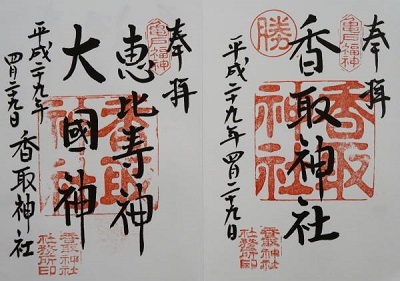 奉拝
香取神社
平成二十九年四月二十九日
勝
亀戸福神
香取
神社
香取神社
社務所印
奉拝
恵比寿神
大國神
平成二十九年
四月二十九日 香取神社
亀戸福神
香取
神社
香取神社
社務所印